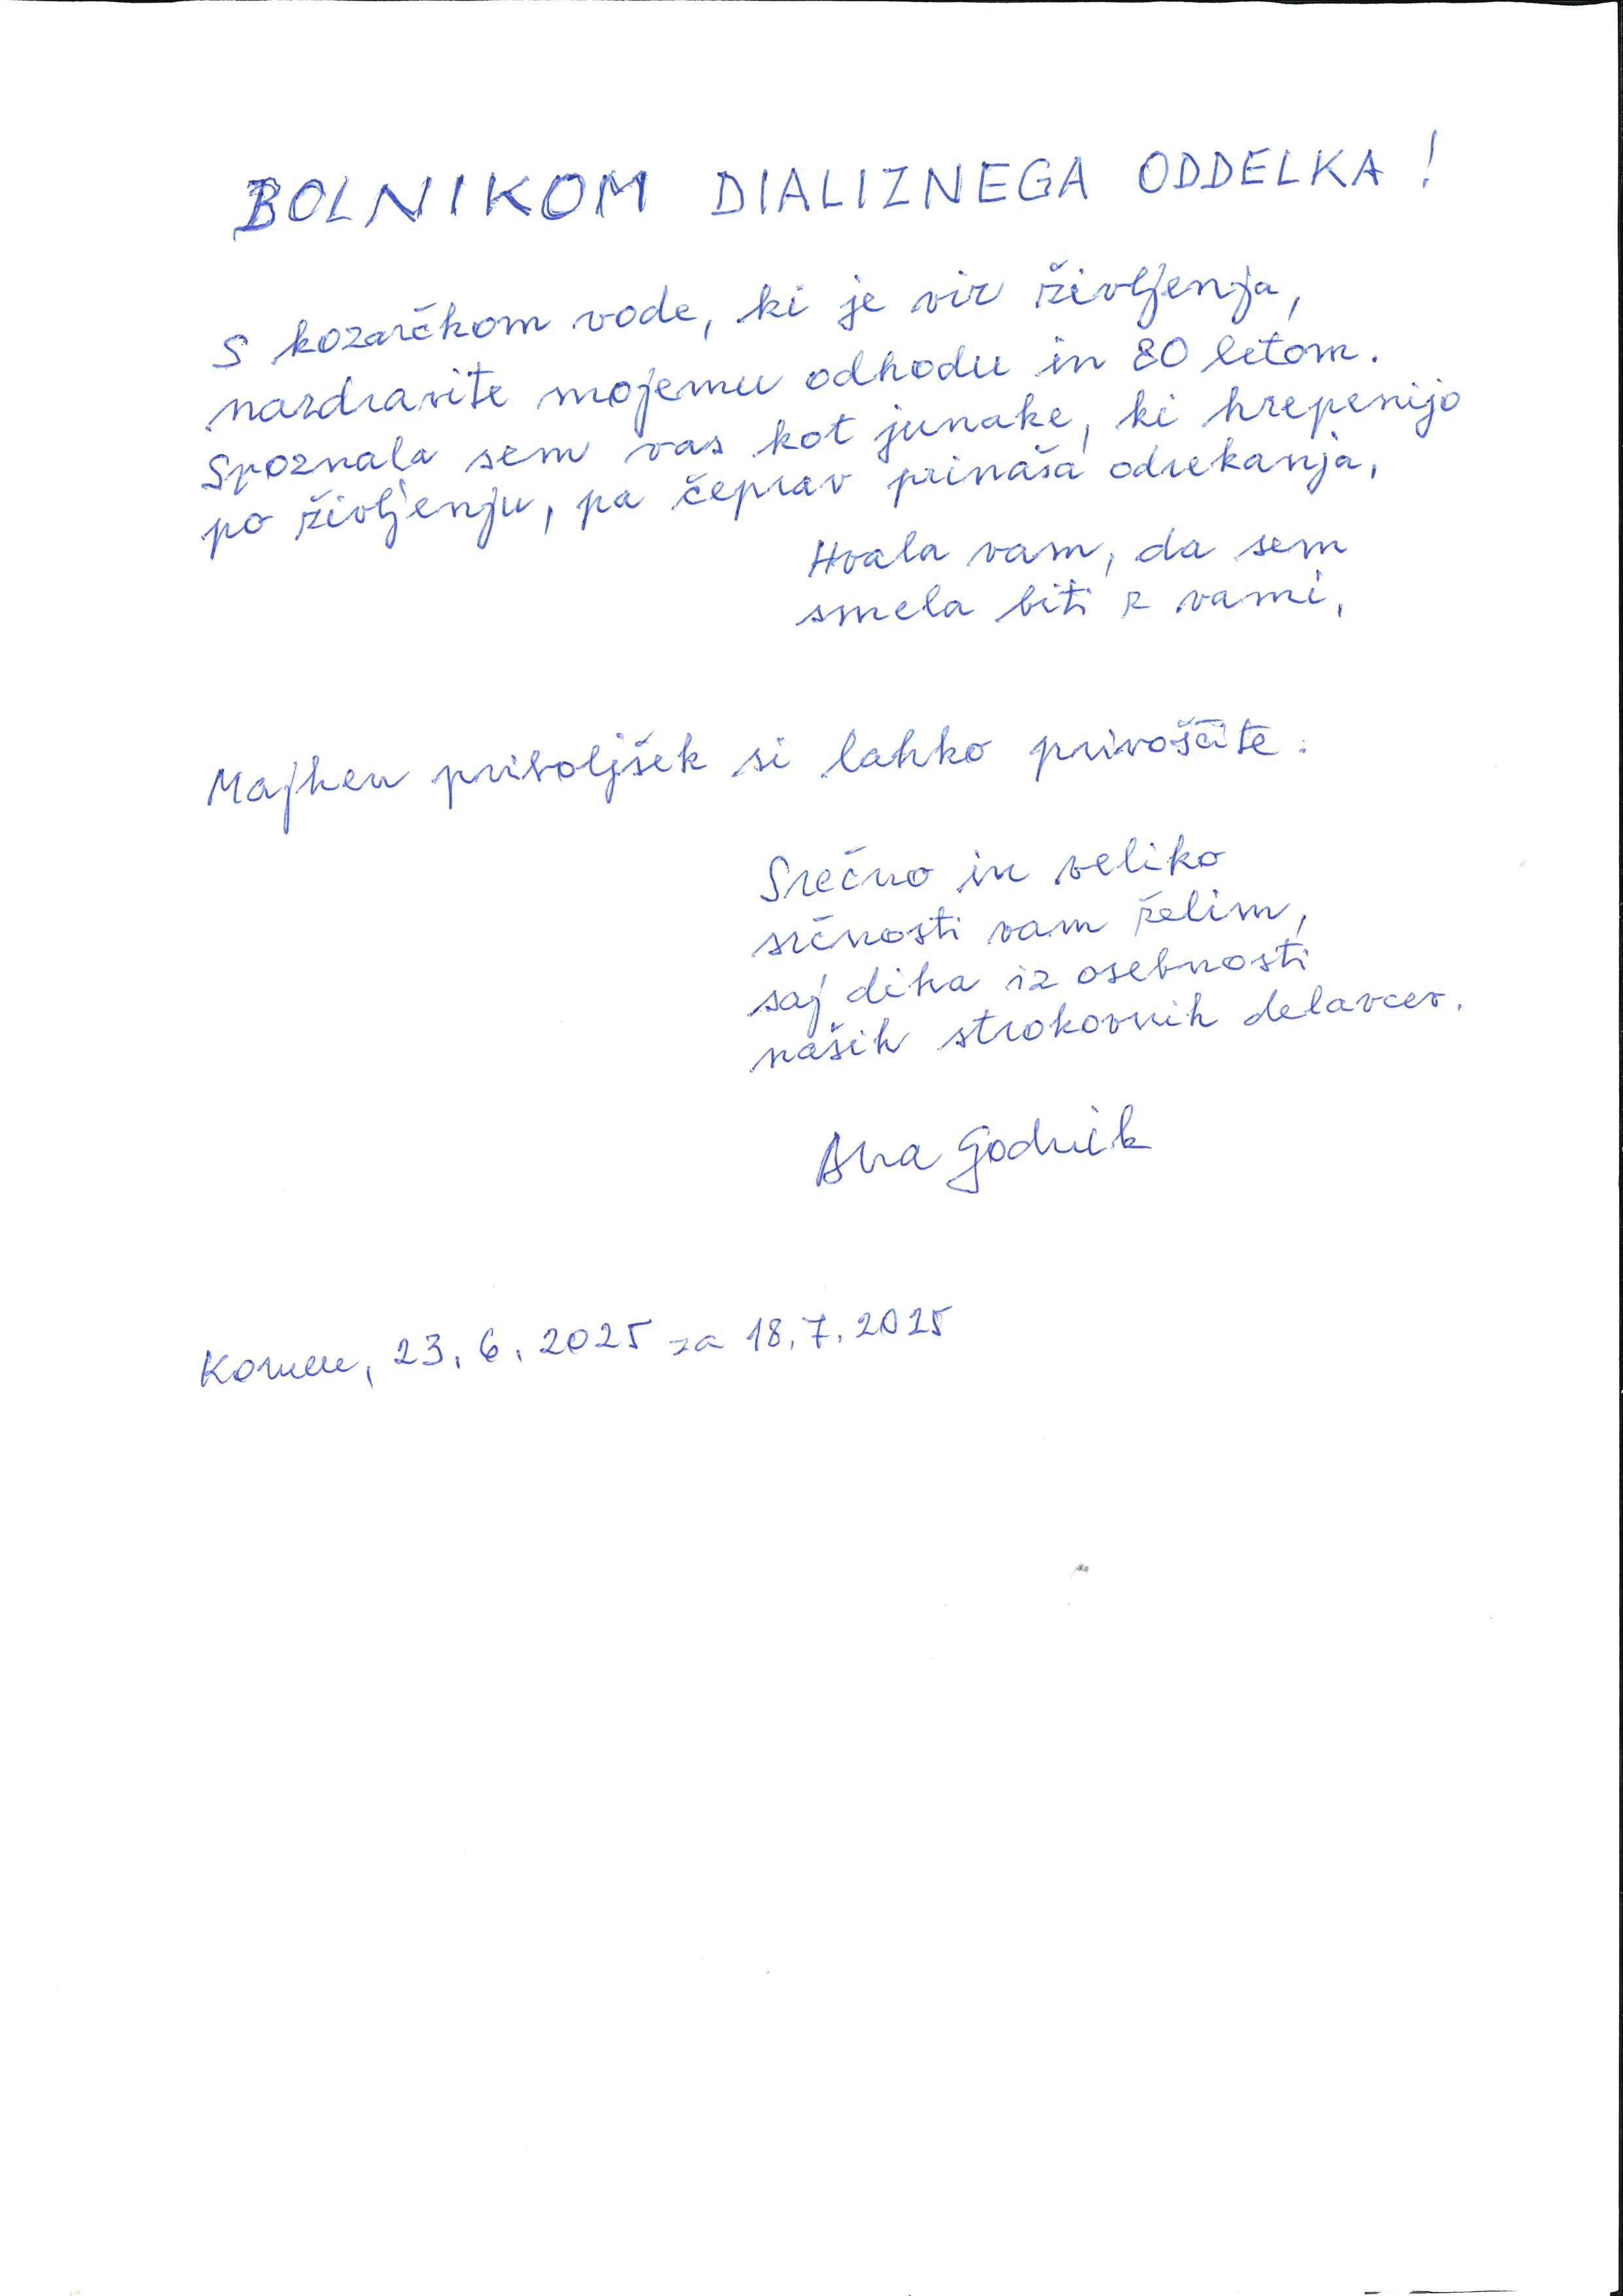 BOLNIKOM DIALIZNEGA ODDELKA!
S kozarčkom vode, ki je vir življenja,
nazdravite mojemu odhodu in 80 letom.
Spoznala sem vas kot junake, ki hrepenijo
po življenju, pa čeprav prinaša odrekanja.
Hvala vam, da sem
smela biti z vami.
Majhen priboljšek si lahko privoščite.
Srečno in veliko
srčnosti vam želim,
saj diha iz osebnosti
naših strokovnih delavcev.
Ana Godnik
Komen, 23. 6. 2025 za 18. 7. 2025